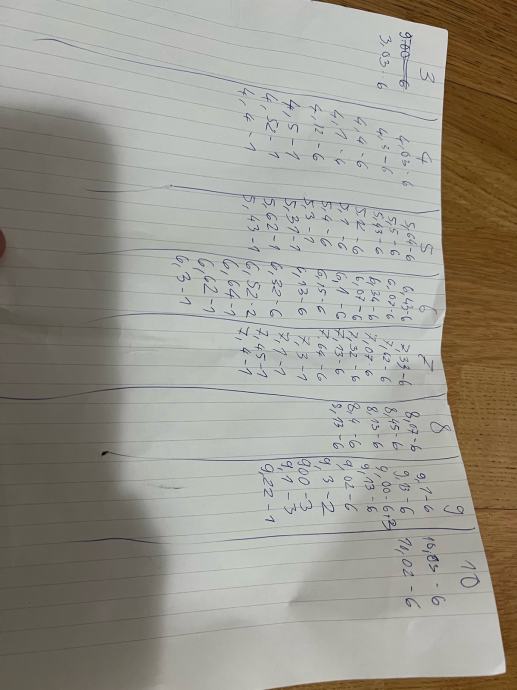 3
3,03-6
4
4,03-6
4,3-6
4,4-6
4,1-6
4,12-6
4,5-1
4,52-1
4,4-1
5
5,64-6
5,5-6
5,43-6
5,2-6
5,1-6
5,4-6
5,3-1
5,31-1
5,62-1
5,43-1
6
6,43-6
6,02-6
6,34-6
6,07-6
6,1-6
6,15-6
6,13-6
6,32-6
6,52-2
6,64-1
6,62-1
6,3-1
7
7,33-6
7,62-6
7,07-6
7,32-6
7,13-6
7,64-6
7,3-1
7,1-1
7,45-1
7,4-1
8
8,07-6
8,45-6
8,13-6
8,4-6
8,13-6
9
9,1-6
9,13-6
9,00-6,3
9,13-6
9,02-6
9,3-2
900-3
9,1-3
9,22-1
10
10,03-6
11,02-6